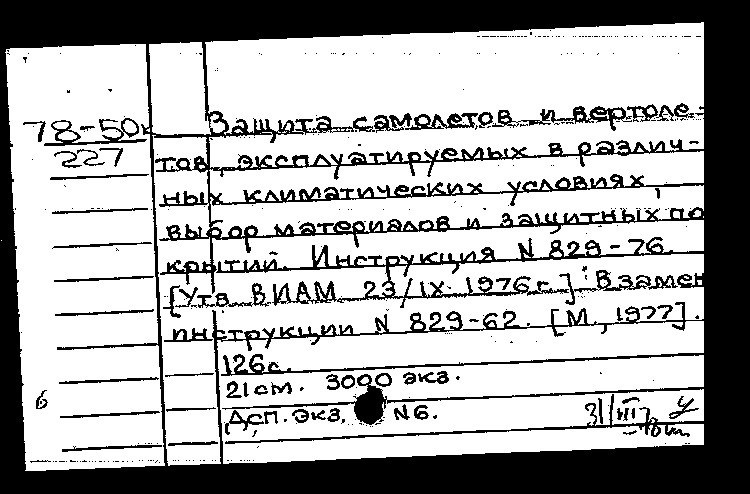 78-50к
227
Защита самолетов и вертоле-
тов, эксплуатируемых в различ-
ных климатических условиях,
выбор материалов и защитных по
крытий. Инструкция N 829-76.
[Утв. ВИАМ 23/IX 1976г.] Взамен
инструкции N 829-62. [М., 1977].
126с.
21см. 3000 экз.
Дсп. экз. N6.
6
31/III